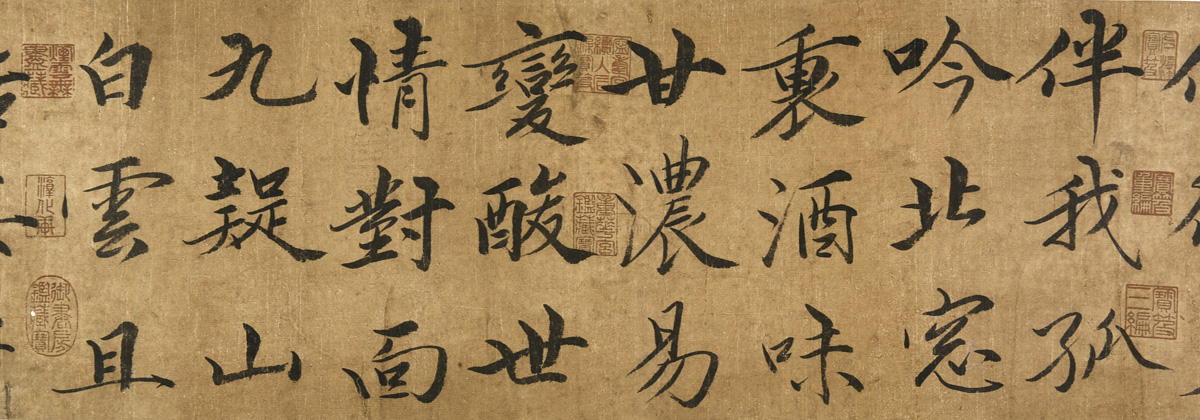 伴我孤
吟北窓
裏酒味
甘濃易
變酸世
情對面
九疑山
白雲且